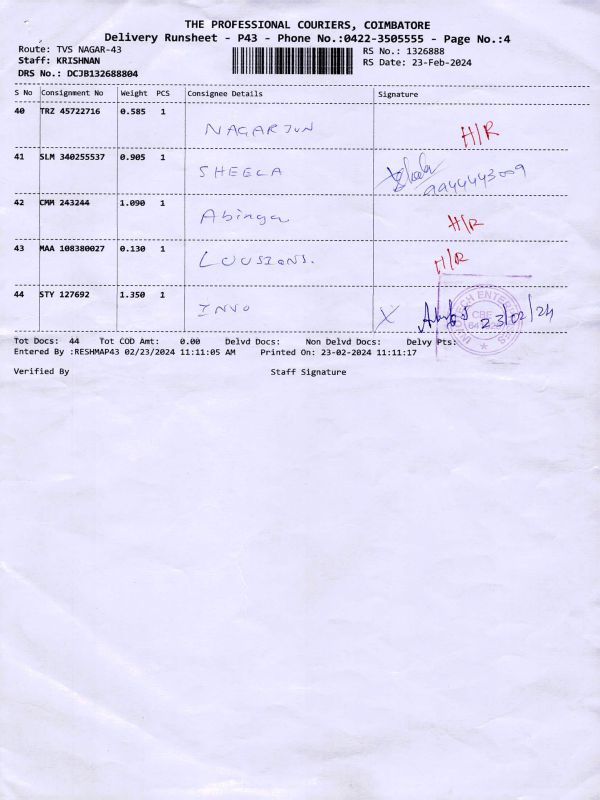 THE PROFESSIONAL COURIERS, COIMBATORE
Delivery Runsheet - P43 - Phone No.:0422-3505555 - Page No.:4
Route: TVS NAGAR-43
Staff: KRISHNAN
DRS No.: DCJB132688804
RS No.: 1326888
RS Date: 23-Feb-2024
S No Consignment No Weight PCS Consignee Details Signature
40 TRZ 45722716 0.585 1 NAGARJUN H/R
41 SLM 340255537 0.905 1 SHEELA 9944443009
42 CMM 243244 1.090 1 Abinaya H/R
43 MAA 108380027 0.130 1 H/R
44 STY 127692 1.350 1 INVO 23/02/24
CBE
Tot Docs: 44 Tot COD Amt: 0.00 Delvd Docs: Non Delvd Docs: Delvy Pts:
Entered By :RESHMAP43 02/23/2024 11:11:05 AM Printed On: 23-02-2024 11:11:17
Verified By Staff Signature